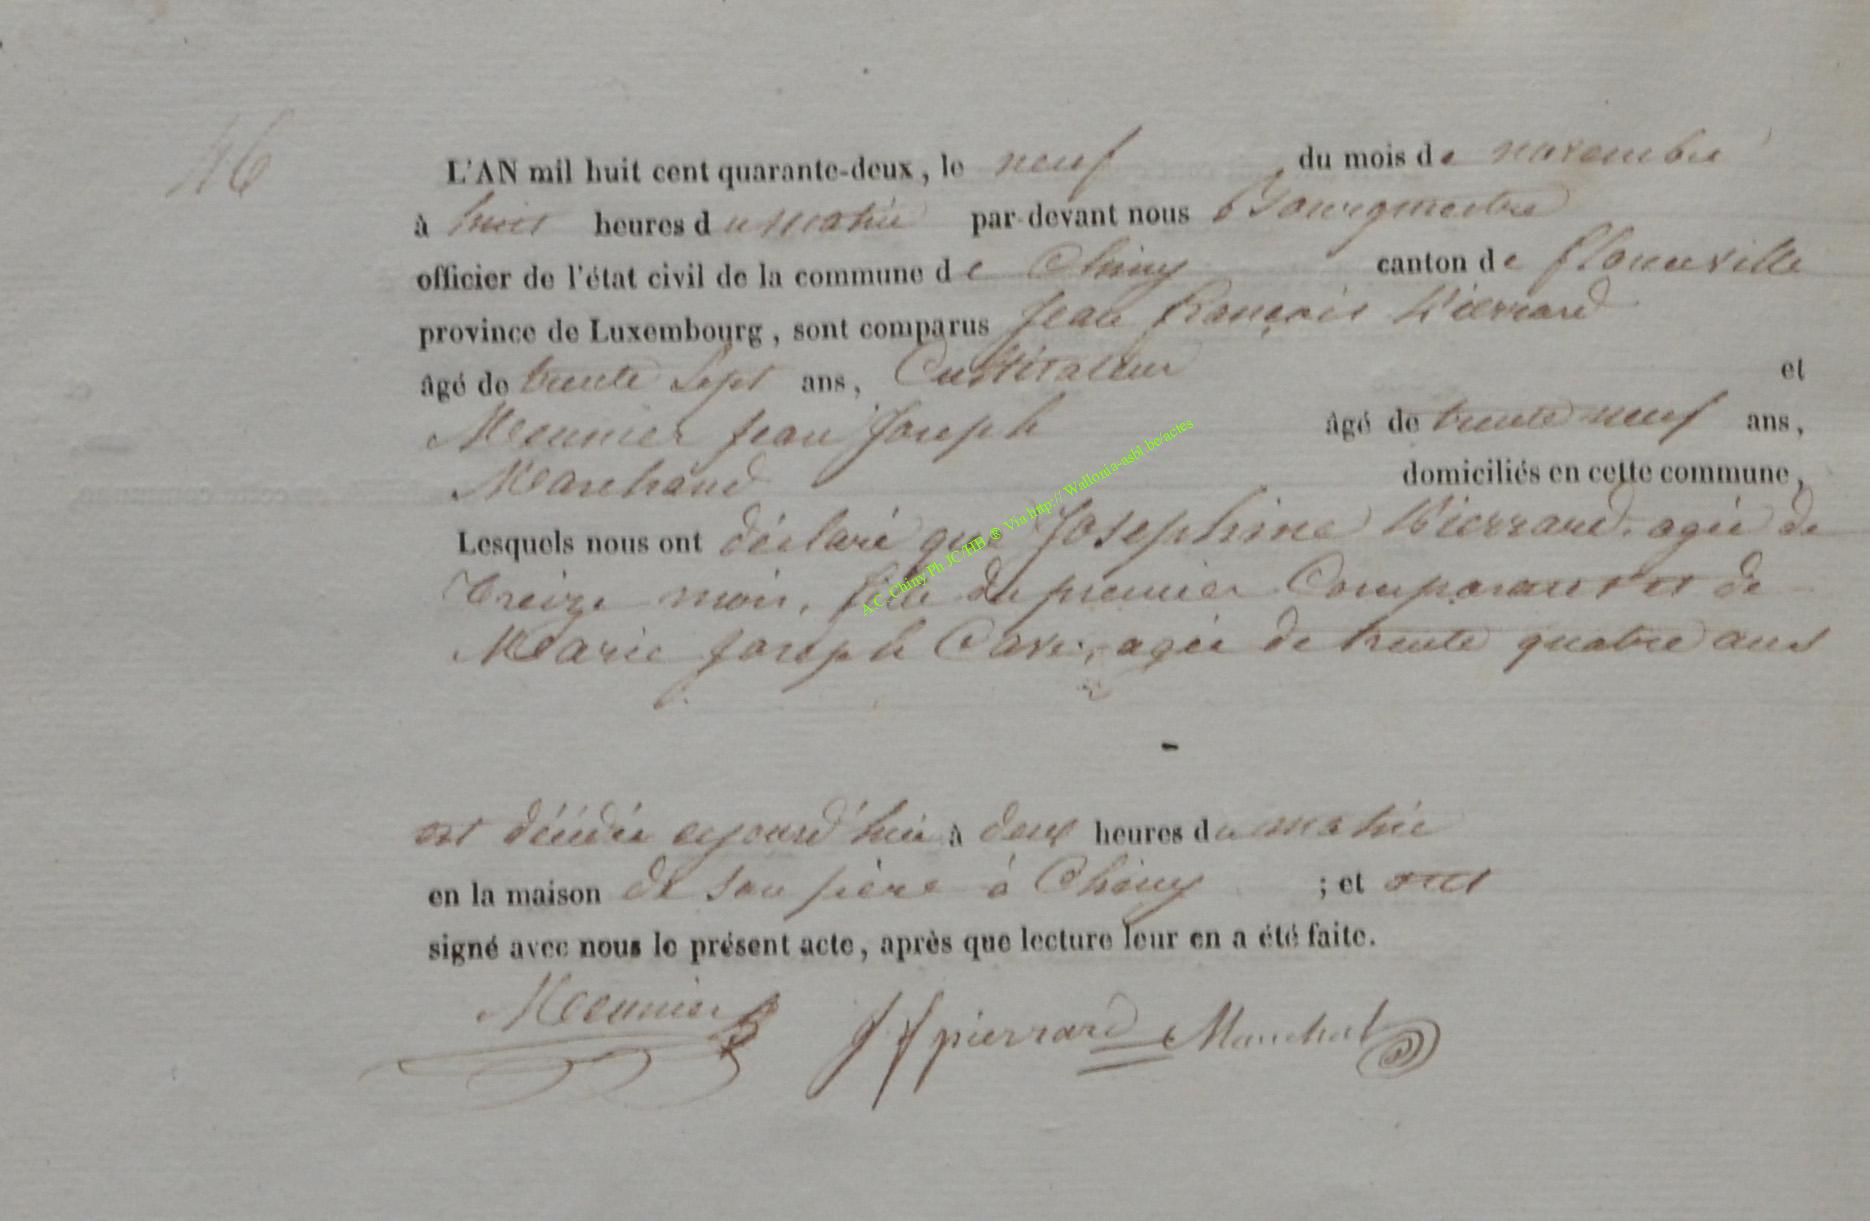 46
L'AN mil huit cent quarante-deux, le neuf du mois de novembre
à huit heures du matin par-devant nous Bourgmestre
officier de l'état civil de la commune de Chiny canton de florenville
province de Luxembourg, sont comparus Jean françois Pierrard
âgé de trente sept ans, Cultivateur et
Meunier Jean Joseph âgé de trente neuf ans,
Marchand domiciliés en cette commune,
Lesquels nous ont déclaré que Josephine Pierrard, agée de
treize mois, fille du premier Comparant et de
Marie Joseph agée de trente quatre ans
est décédée aujourd'hui à deux heures du matin
en la maison de son père à Chiny ; et ont
signé avec nous le présent acte, après que lecture leur en a été faite.
Meunier J f pierrard Marchal
A.C. Chiny Ph JC/HB ® Via http:// Wallonia-asbl.be/actes